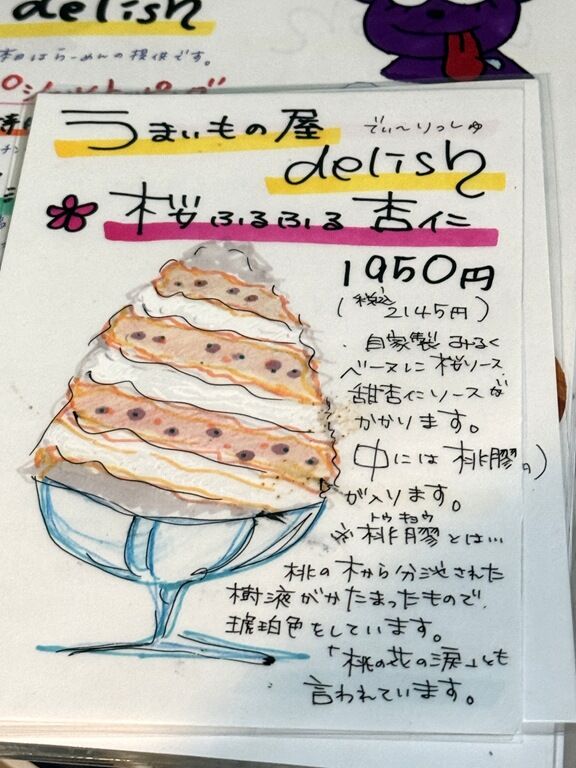 delish
本日はらーめんの提供です。
うまいもの屋
でぃ〜りっしゅ
delish
桜ふるふる杏仁
1950円
(税込2145円)
自家製みるく
ベースに桜ソース、
甜杏仁ソースが
かかります。
中には桃膠(の)
が入ります。
トウ キョウ
※桃膠とは…
桃の木から分泌された
樹液がかたまったもので、
琥珀色をしています。
「桃の花の涙」とも
言われています。